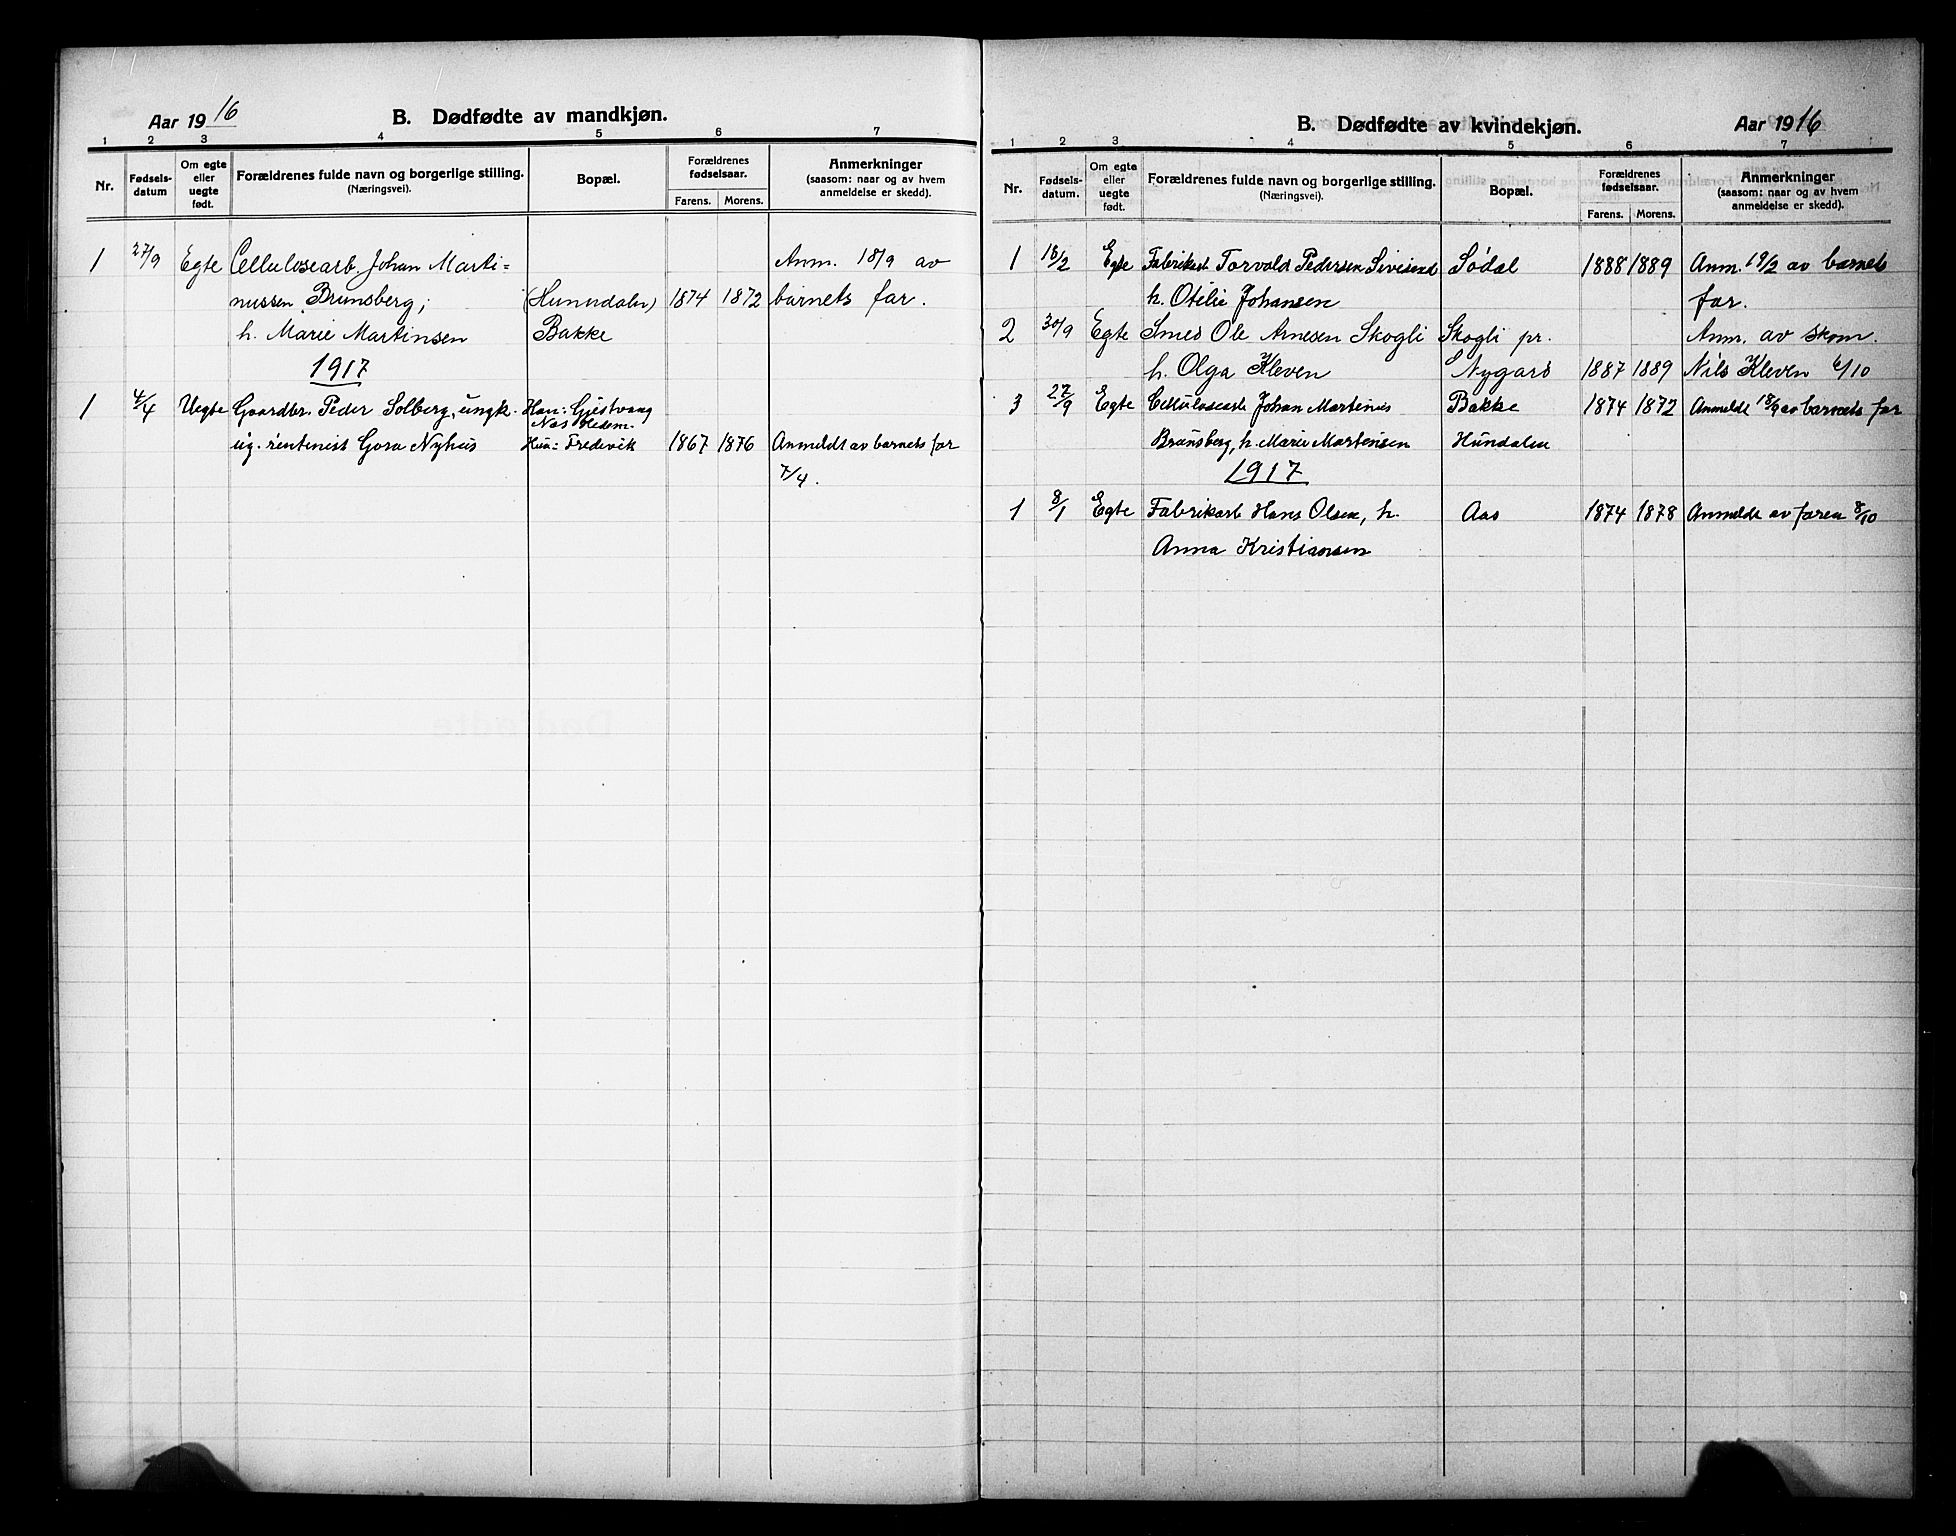 Aar 1916
B. Dødfødte av mandkjøn.
1 2 3 4 5 6 7
Nr.
Fødsels-
datum
Om egte
eller
uegte
født.
Forældrenes fulde navn og borgerlige stilling.
(Næringsvei).
Bopæl.
Forældrenes
fødselsaar.
Farens. Morens.
Anmerkninger
(saasom: naar og av hvem
anmeldelse er skedd).
1 27/9 Egte Cellulosearb. Johan Marti= Anm. 18/9 av
nussen Brunsberg; (Hunndalen) 1874 1872 barnets far.
h. Marie Martinsen Bakke
1917
1 4/4 Uegte Gaardbr. Peder Solberg, ungk. Han: Gjestvang
Nes Hedem.
ug. rentenist Gora Nyhus Hun: Fredevik 1867 1876 Anmeldt av barnets far
7/4.
B. Dødfødte av kvindekjøn.
Aar 1916
1 2 3 4 5 6 7
Nr.
Fødsels-
datum.
Om egte
eller
uegte
født.
Forældrenes fulde navn og borgerlige stilling.
(Næringsvei).
Bopæl.
Forældrenes
fødselsaar.
Farens. Morens.
Anmerkninger
(saasom: naar og av hvem
anmeldelse er skedd).
1 18/2 Egte Torvald Pedersen Sivesind Södal 1888 1889 Anm. 19/2 av barnets
h. Otelie Johansen far.
2 30/9 Egte Smed Ole Arnesen Skogli Skogli pr. Anm. av skom.
h. Olga Kleven Nygard 1887 1889 Nils Kleven 6/10
3 27/9 Egte Cellulosearb Johan Martinus Bakke 1874 1872 Anmeldt 18/9 av barnets far
Brunsberg, h. Marie Martinsen Hundalen
1917
1 8/1 Egte Fabrikarb Hans Olsen, h. Aas 1874 1878 Anmeldt av faren 8/10
Anna Kristiansen